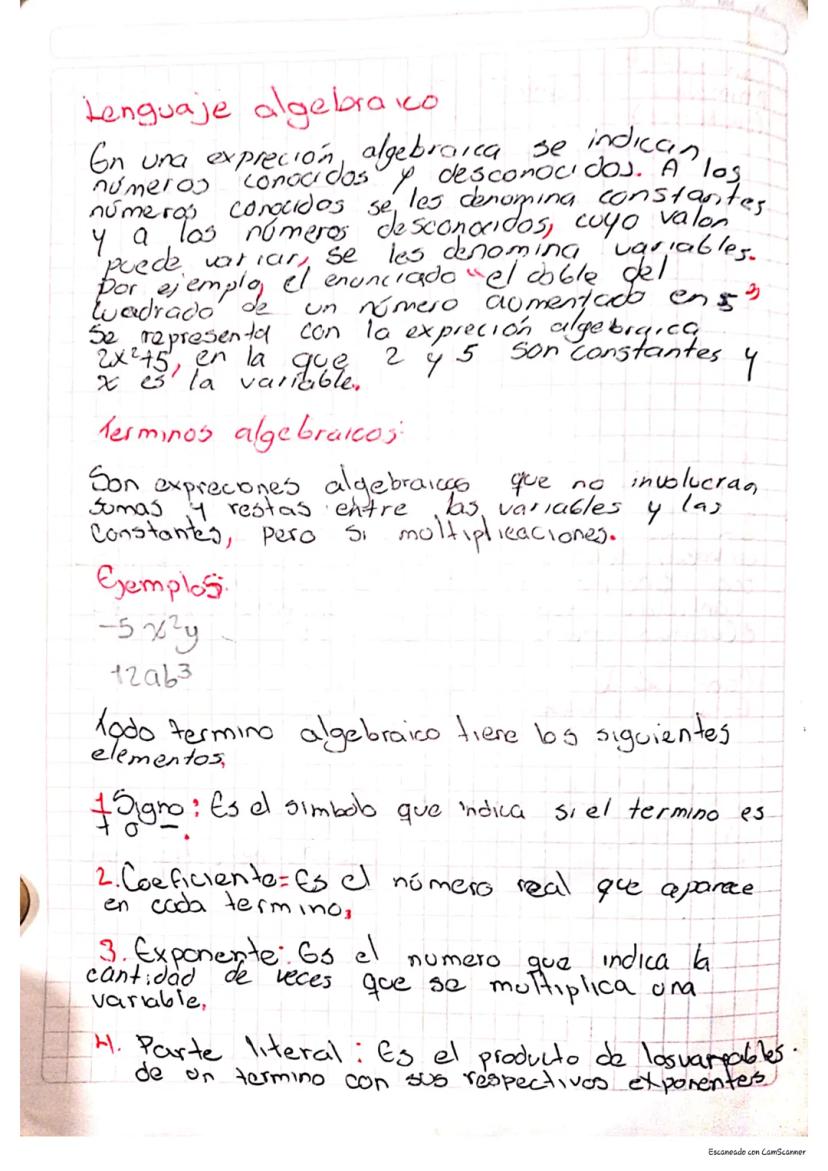 Lenguaje algebraico
En una expreción algebraica se indican
números conocidos y desconocidos. A los
números conocidos se les denomina constantes
y a los números desconocidos, cuyo valor
puede variar, se les denomina variables.
Por ejemplo, el enunciado "el doble del
cuadrado de un número aumentado en 5"
se representa con la expreción algebraica
2x²+5, en la que 2 y 5 son constantes y
x es la variable.
Terminos algebraicos:
Son expreciones algebraicas que no involucran
sumas y restas entre las variables y las
constantes, pero si multiplicaciones.
Ejemplos:
-5x²y
+2ab³
Todo termino algebraico tiene los siguientes
elementos,
1 Signo: Es el simbolo que indica si el termino es
+ o -.
2. Coeficiente= Es el número real que aparece
en cada termino,
3. Exponente: Es el numero que indica la
cantidad de veces que se multiplica una
variable,
4. Parte literal: Es el producto de las variables
de un termino con sus respectivos exponentes
Escaneado con CamScanner